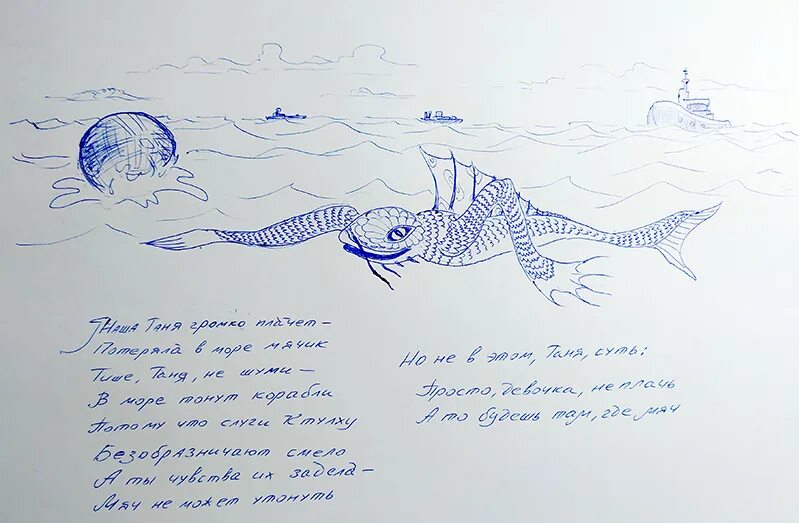 Наша Таня громко плачет –
Потеряла в море мячик
Тише, Таня, не шуми –
В море тонут корабли
Потому что слуги Ктулху
Безобразничают смело
А ты чувства их задела –
Мяч не может утонуть
Но не в этом, Таня, суть:
Просто, девочка, не плачь
А то будешь там, где мяч